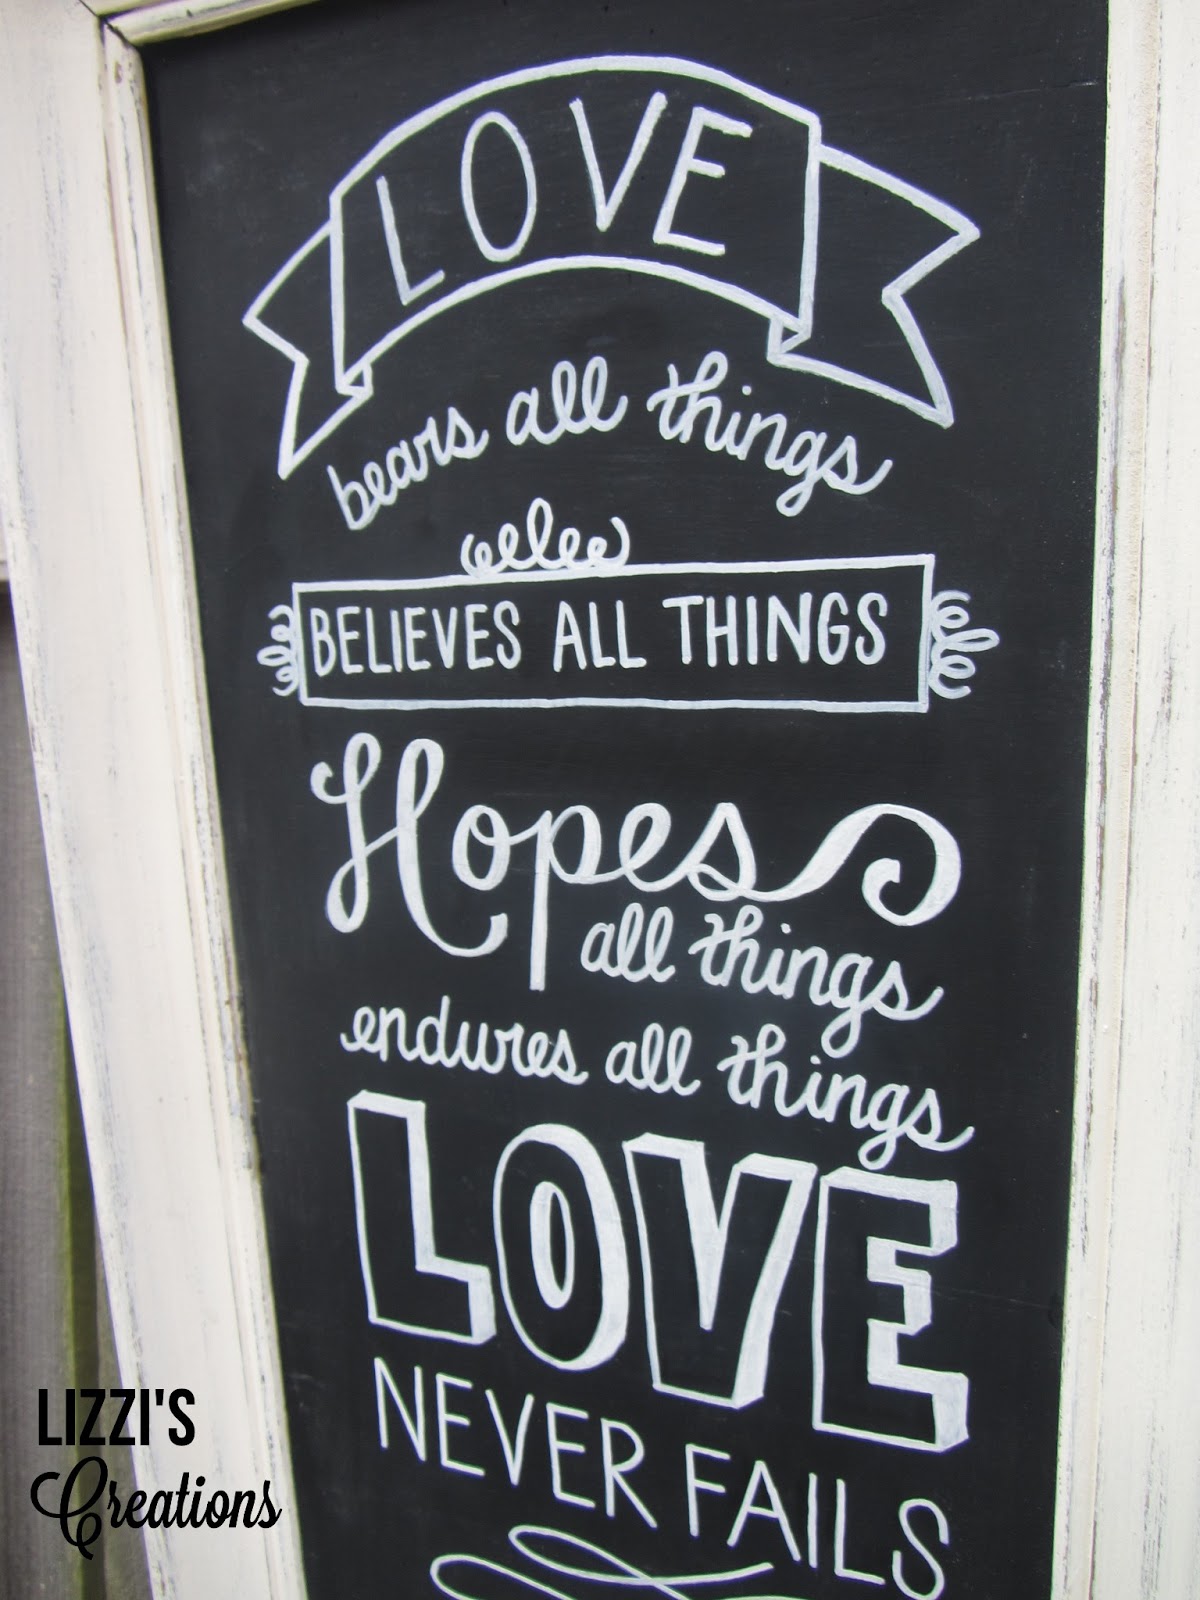 LOVE
bears all things
BELIEVES ALL THINGS
Hopes
all things
endures all things
LOVE
NEVER FAILS
LIZZI'S
Creations